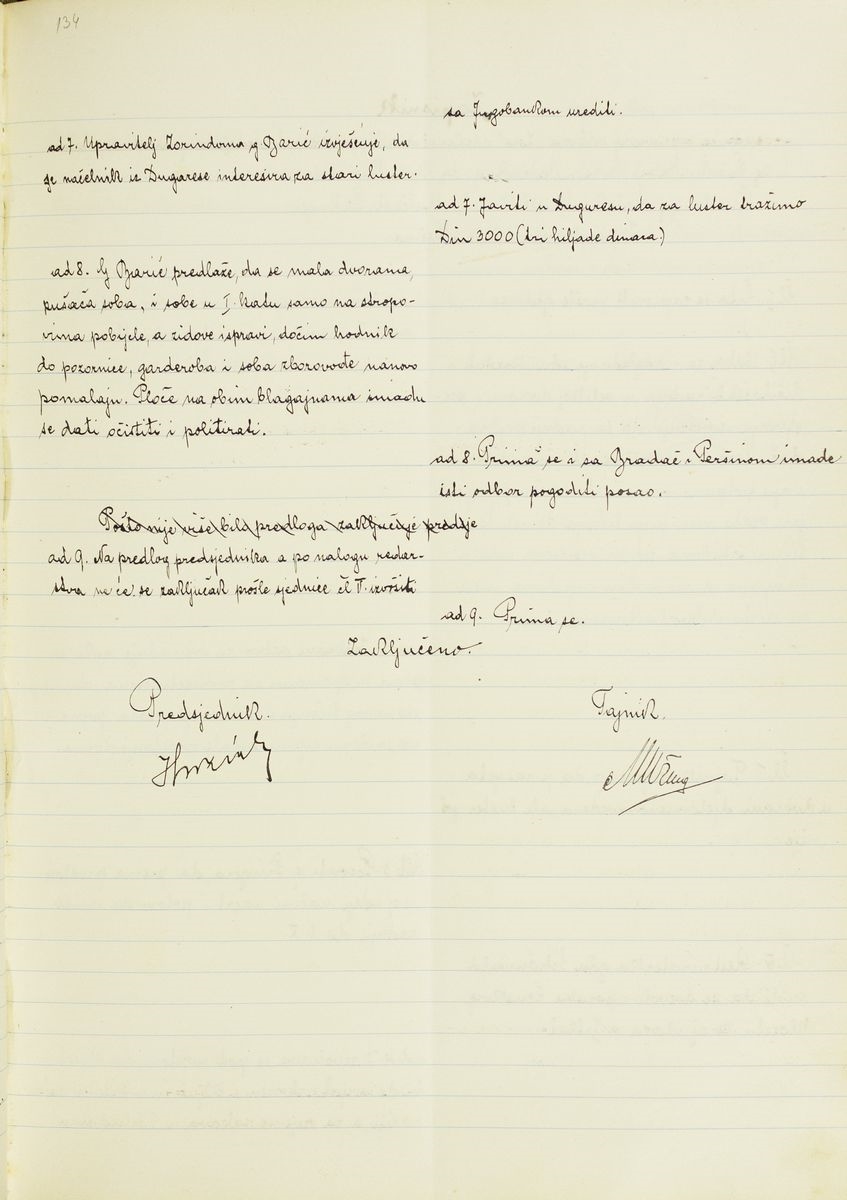 134
sa Jugobankom urediti.
ad 7. Upravitelj Zorindoma g Barić izvješćuje, da
se načelnik iz Dugarese interesira za stari luster.
ad 7. Javiti u Dugaresu, da za luster tražimo
Din 3000 (tri hiljade dinara)
ad 8. G Barić predlaže, da se mala dvorana,
pušaća soba, i sobe u I. katu samo na stropo-
vima pobijele, a zidove ispravi, dočim hodnik
do pozornice, garderoba i soba zborovođe nanovo
pomalaju. Ploče na obim blagajnama imadu
se dati očistiti i politirati.
ad 8. Prima se i sa Bradač i Peršinom imade
isti odbor pogoditi posao.
Pošto nije više bilo predloga zaključuje predsje
ad 9. Na predlog predsjednika a po nalogu redar-
stva ne će se zaključak prošle sjednice čl II. izvršiti
ad 9. Prima se.
Zaključeno.
Predsjednik.
Tajnik.